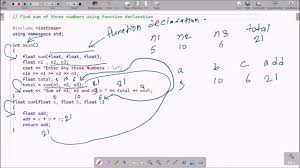 // Find sum of three numbers using function declaration
#include<iostream>
using namespace std;
int main()
{
float sum(float, float, float);
float n1, n2, n3, total;
cout << "Enter any three Numbers : \n";
cin >> n1 >> n2 >> n3;
total = sum(n1, n2, n3);
cout << "Sum of n1, n2 and n3 = " << total << endl;
}
float sum(float a, float b, float c)
{
float add;
add = a + b + c;
return add;
}
function declaration.
n1 n2 n3 total
5 10 6 21
a b c add
5 10 6 21
21